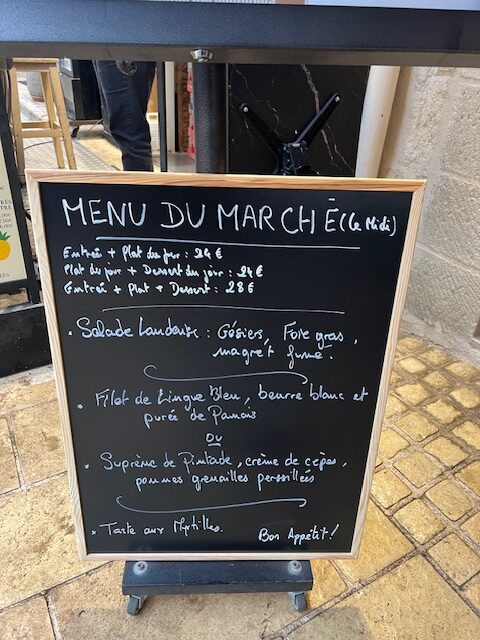 MENU DU MARCHÉ (Le Midi)
Entrée + Plat du jour : 24 €
Plat du jour + Dessert du jour : 24 €
Entrée + Plat + Dessert : 28 €
• Salade Landaise : Gésiers, Foie gras,
magret fumé.
• Filet de Lingue Bleu, beurre blanc et
purée de Panais
OU
• Suprême de Pintade, crème de cèpes,
pommes grenailles persillées
• Tarte aux Myrtilles.
Bon Appétit !